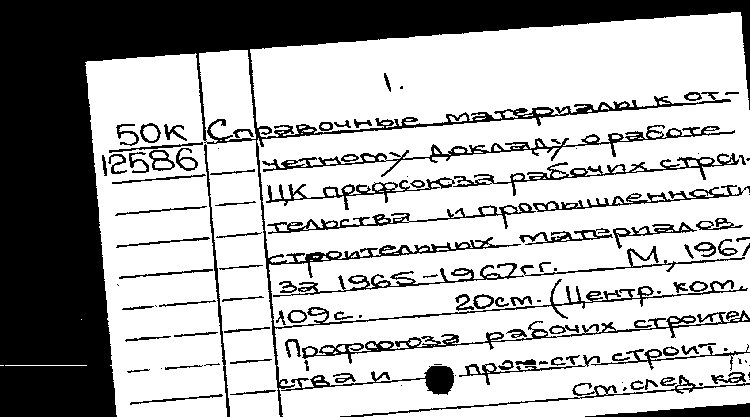 1.
50К Справочные материалы к от-
12586 четному докладу о работе
ЦК профсоюза рабочих строи-
тельства и промышленности
строительных материалов
за 1965-1967гг. М., 1967
109с. 20см. (Центр. ком.
Профсоюза рабочих строитель
ства и пром-сти строит.
Ст. след. ка